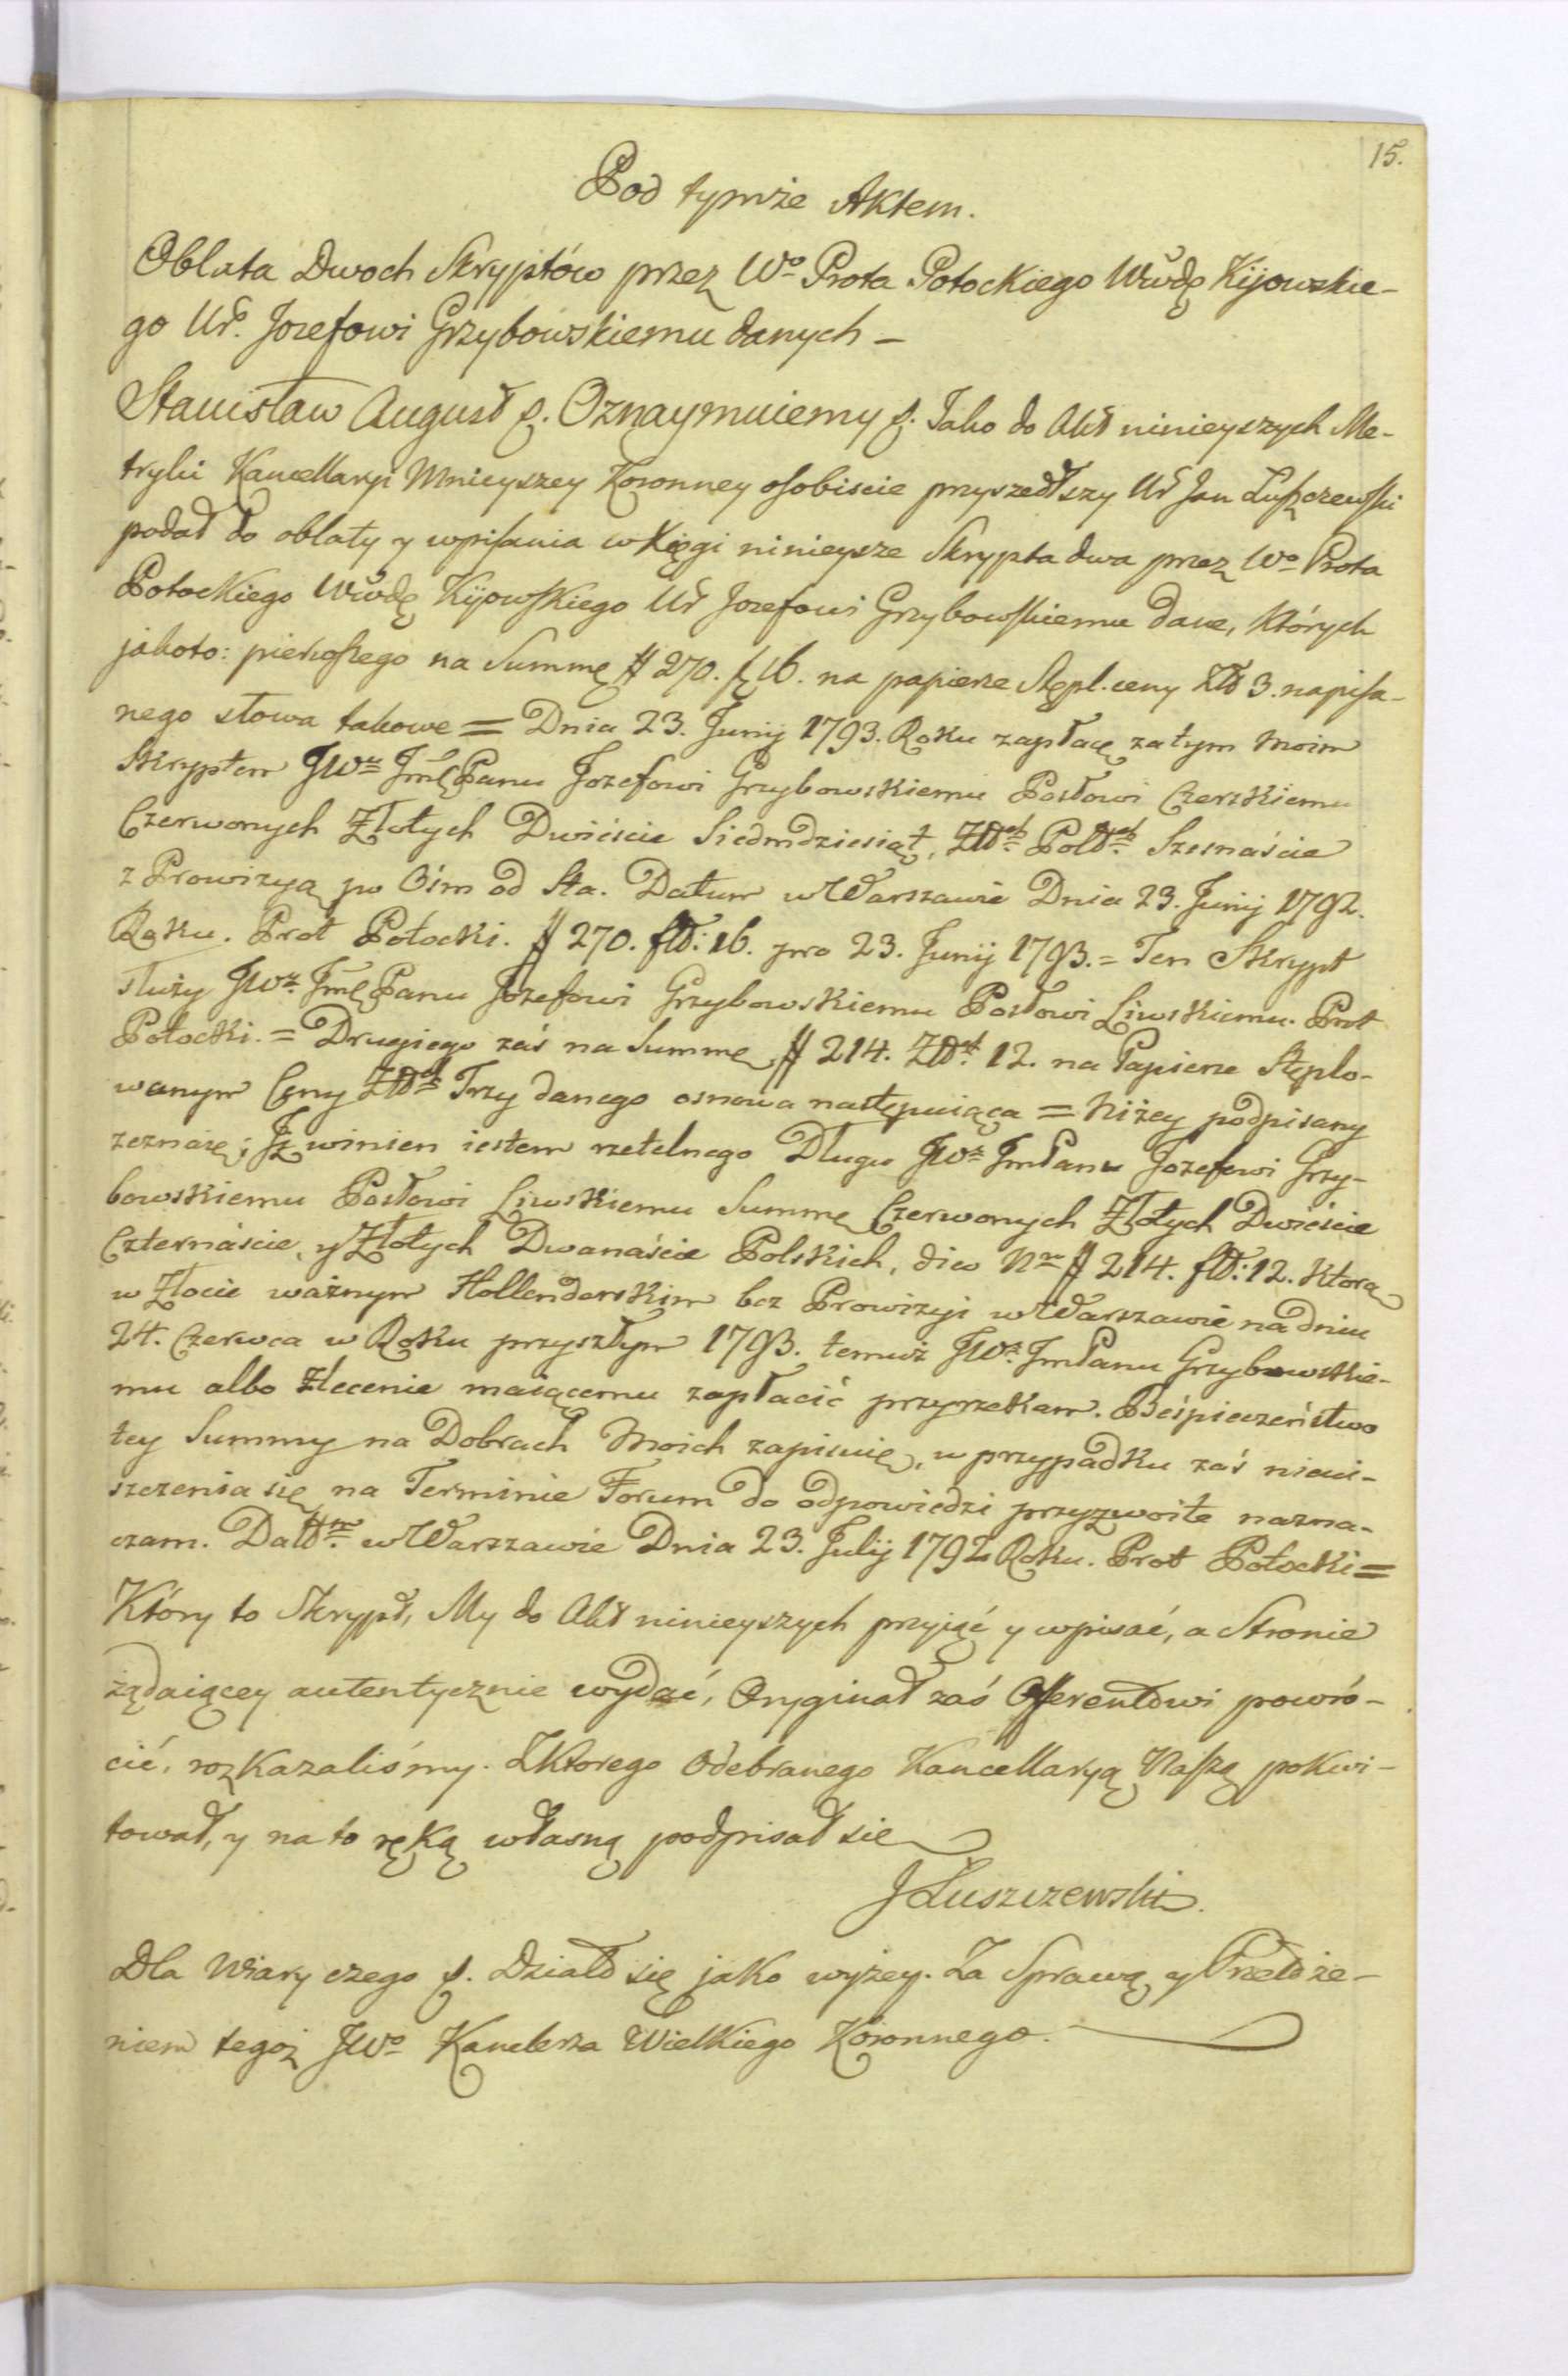 15.
Pod tymże Aktem.
Oblata Dwoch Skryptów przez Wo Prota Potockiego Wwdę Kijowskie-
go Ur. Jozefowi Grzybowskiemu danych –
Stanisław August p. Oznaymuiemy p. Jako do Akt ninieyszych Me-
tryki Kancellaryi Mnieyszey Koronney osobiscie przyszedłszy Ur Jan Łuszczewski
podał do oblaty y wpisania w Xięgi ninieysze Skrypta dwa przez Wo Prota
Potockiego Wwdę Kijowskiego Ur Jozefowi Grzybowskiemu dane, których
jakoto: pierwszego na Summę # 270. f 16. na papierze Stępl. ceny Zło 3. napisa-
nego słowa takowe = Dnia 23. Junij 1793. Roku zapłacę za tym moim
Skryptem JWu Jmć Panu Jozefowi Grzybowskiemu Posłowi Czerskiemu
Czerwonych Złotych Dwieście Siedmdziesiąt, Złłch Polłch Szesnaście
z Prowizyą po Ośm od Sta. Datum w Warszawie Dnia 23. Junij 1792.
Roku. Prot Potocki. # 270. fłł: 16. pro 23. Junij 1793. = Ten Skrypt
służy JWu Jmć Panu Jozefowi Grzybowskiemu Posłowi Liwskiemu. Prot
Potocki. = Drugiego zaś na Summę # 214. Złłch 12. na Papierze Stęplo-
wanym Ceny Złłch Trzy danego osnowa następuiąca = Niżey podpisany
zeznaię; Iż winien iestem rzetelnego Długu JWu JmPanu Jozefowi Grzy-
bowskiemu Posłowi Liwskiemu Summę Czerwonych Złotych Dwieście
Czternáście, y Złotych Dwanaście Polskich, dico Nro # 214. fłł: 12. którą
w Złocie ważnym Hollenderskim bez Prowizyi w Warszawie na dniu
24. Czerwca w Roku przyszłym 1793. temuż JWu JmPanu Grzybowskie-
mu albo Zlecenie maiącemu zapłacić przyrzekam. Beśpieczeństwo
tey Summy na Dobrach Moich zapisuię, w przypadku zaś nieui-
szczenia się na Terminie Forum do odpowiedzi przyzwoite nazna-
czam. Dattm w Warszawie Dnia 23. Julij 1792 Roku. Prot Potocki =
Który to Skrypt, My do Akt ninieyszych przyiąć y wpisać, a Stronie
żądaiącey autentycznie wydać, Oryginał zaś Offerentowi powró-
cić, rozkazaliśmy. Z którego odebranego Kancellaryą Naszą pokwi-
tował, y na to ręką własną podpisał się
JŁuszczewski.
Dla wiary czego p. Działo się jako wyżey. Za Sprawą y Przełoże-
niem tegoż JWo Kanclerza Wielkiego Koronnego.